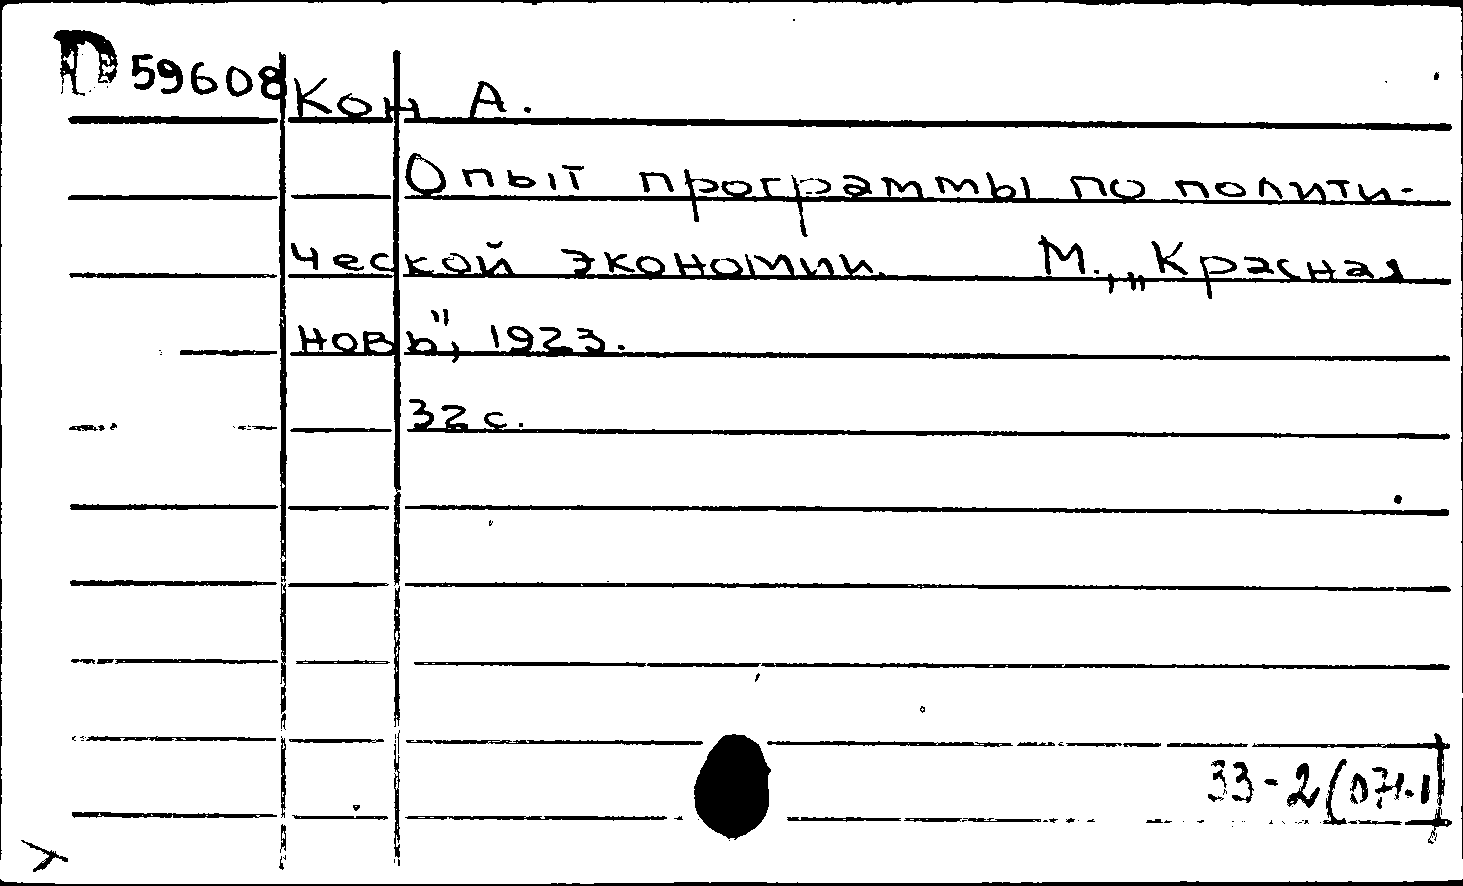 D 59608 Кон А.
Опыт программы по полити-
ческой экономии. М., „Красная
новь", 1923.
32 с.
33-2(071.1)